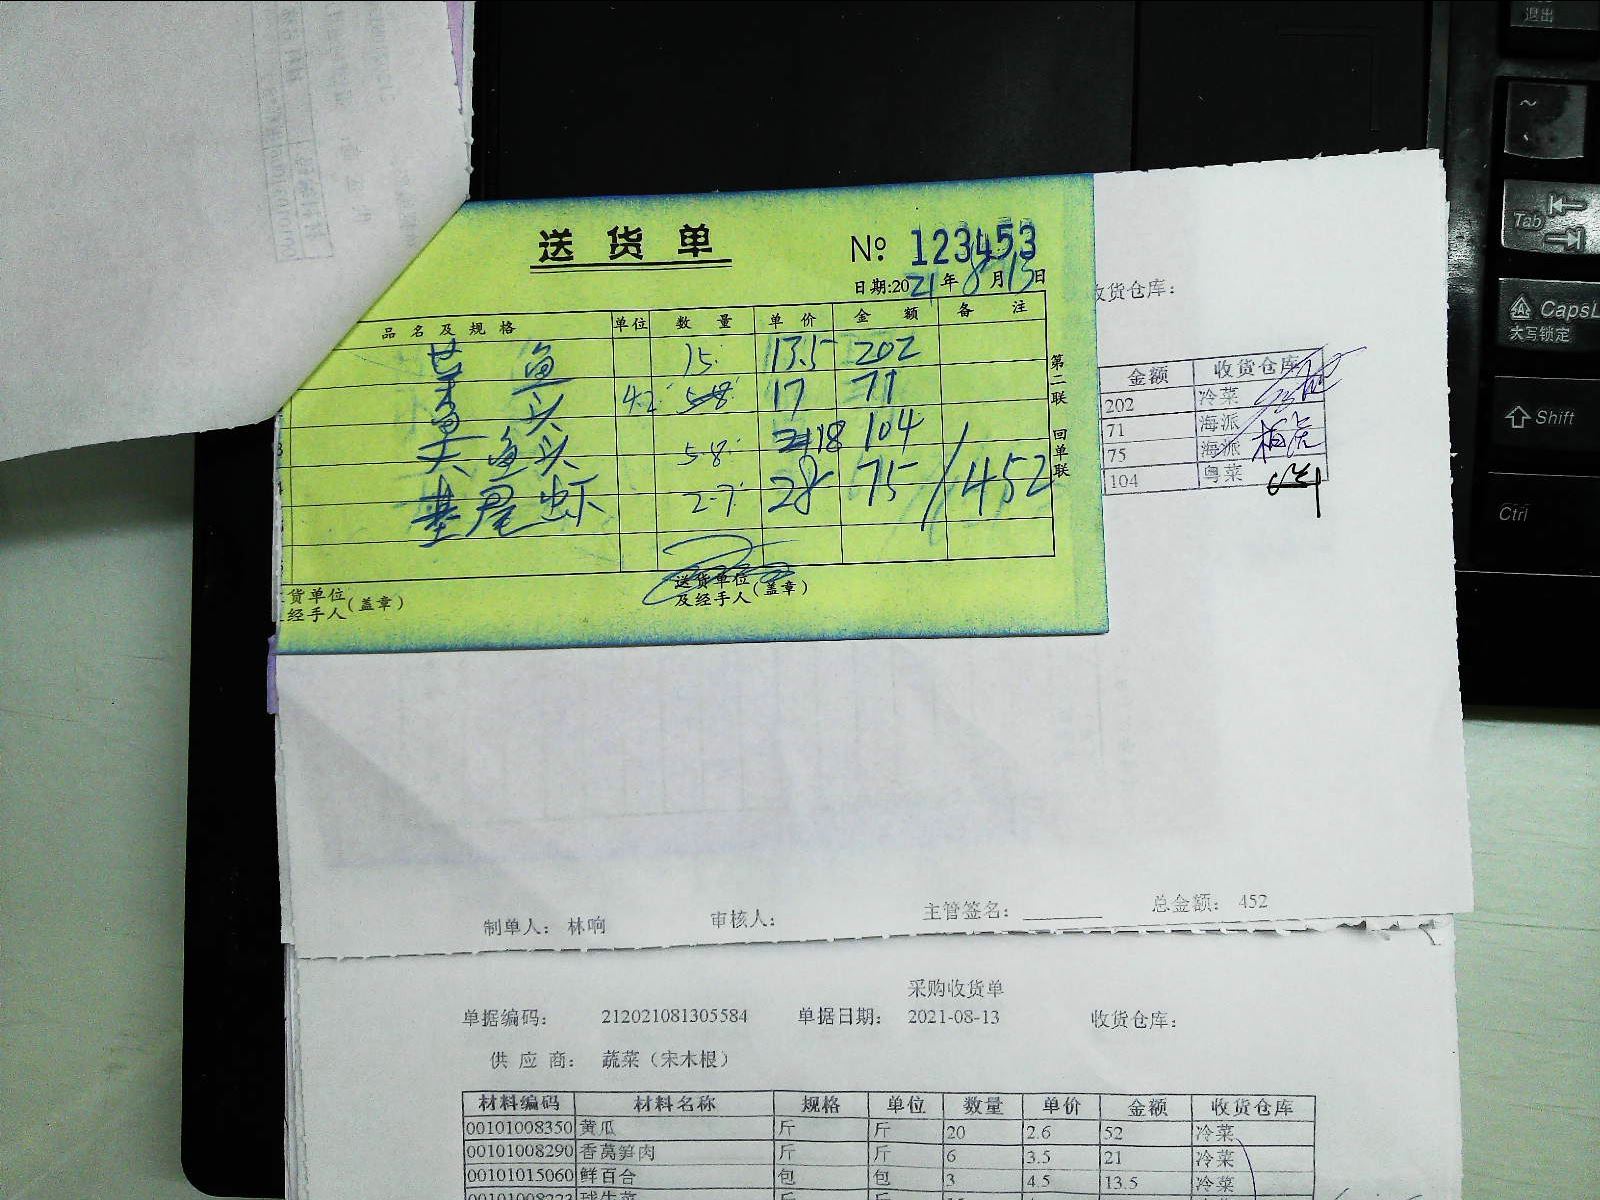 送货单
№ 123453
日期:2021年8月13日
品名及规格 单位 数量 单价 金额 备注
鱼 15 13.5 202
鱼头 4.2 17 71
大鱼头 5.8 18 104
基尾虾 2.7 28 75 / 452
第二联 回单联
货单位
经手人(盖章)
送货单位
及经手人(盖章)
收货仓库:
金额 收货仓库
202 冷菜
71 海派
75 海派
104 粤菜
制单人: 林响 审核人: 主管签名: 总金额: 452
采购收货单
单据编码: 212021081305584 单据日期: 2021-08-13 收货仓库:
供应商: 蔬菜(宋木根)
材料编码 材料名称 规格 单位 数量 单价 金额 收货仓库
00101008350 黄瓜 斤 斤 20 2.6 52 冷菜
00101008290 香莴笋肉 斤 斤 6 3.5 21 冷菜
00101015060 鲜百合 包 包 3 4.5 13.5 冷菜
退出
~
Tab
CapsL
大写锁定
Shift
Ctrl